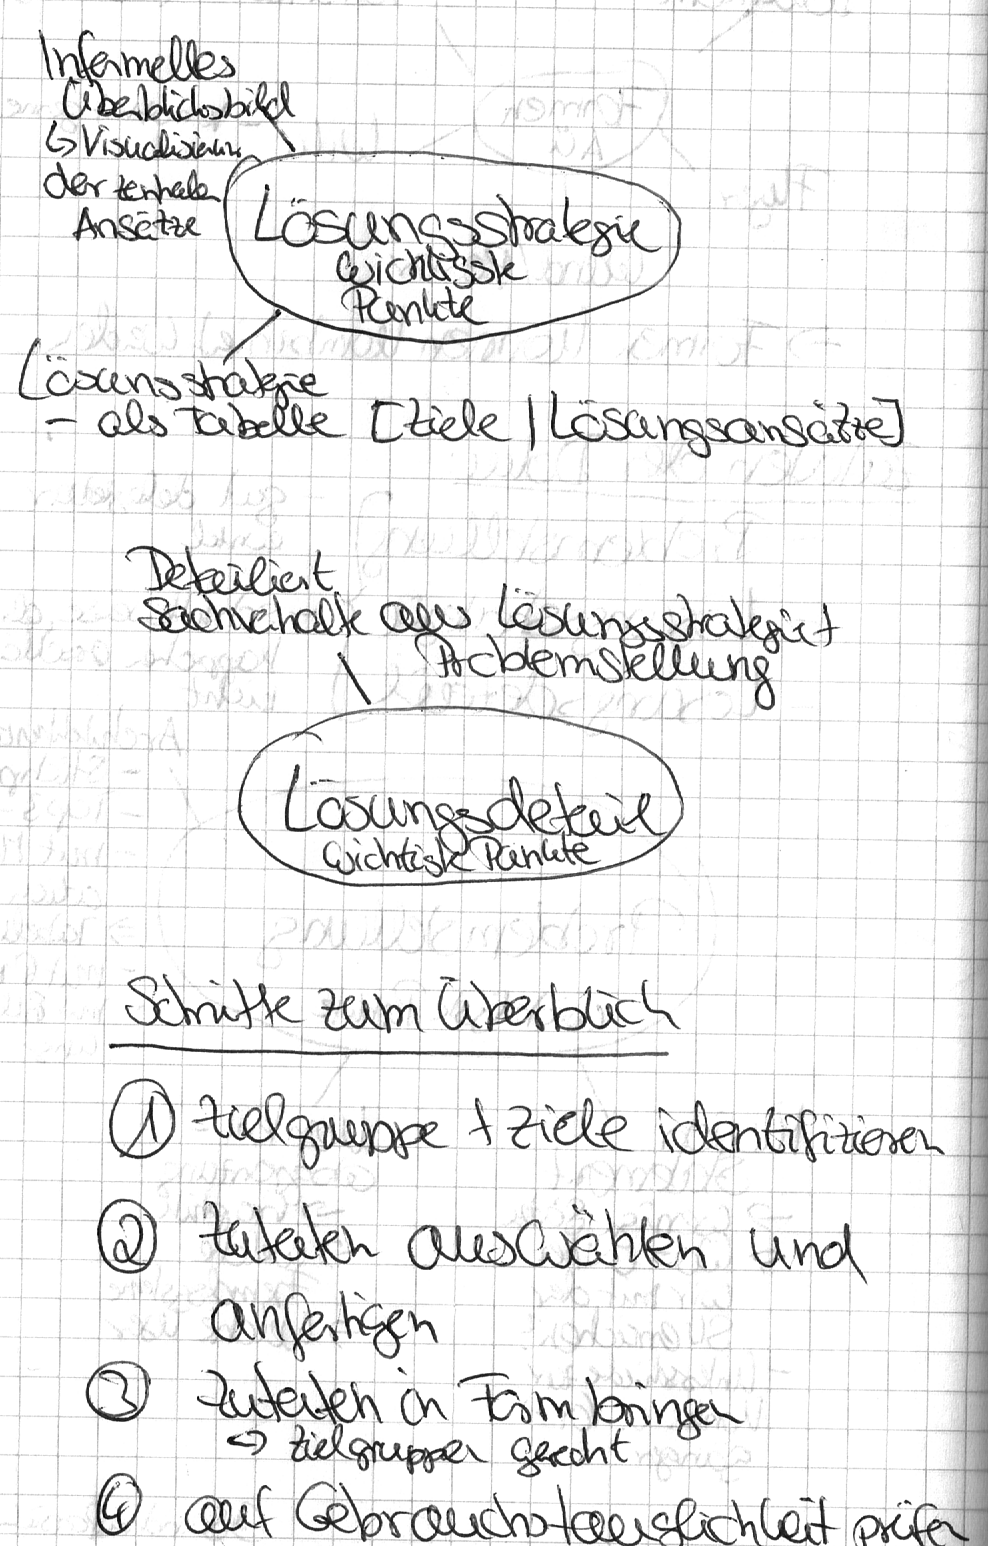 Informelles
Überblicksbild
↳ Visualisierung
der zentralen
Ansätze
Lösungsstrategie
wichtigste
Punkte
Lösungsstrategie
- als Tabelle [Ziele | Lösungsansätze]
Detailiert
Sachverhalte aus Lösungsstrategie +
Problemstellung
Lösungsdetail
wichtigste Punkte
Schritte zum Überblick
① Zielgruppe + Ziele identifizieren
② Zutaten auswählen und
anfertigen
③ Zutaten in Form bringen
↳ zielgruppen gerecht
④ auf Gebrauchstauglichkeit prüfen